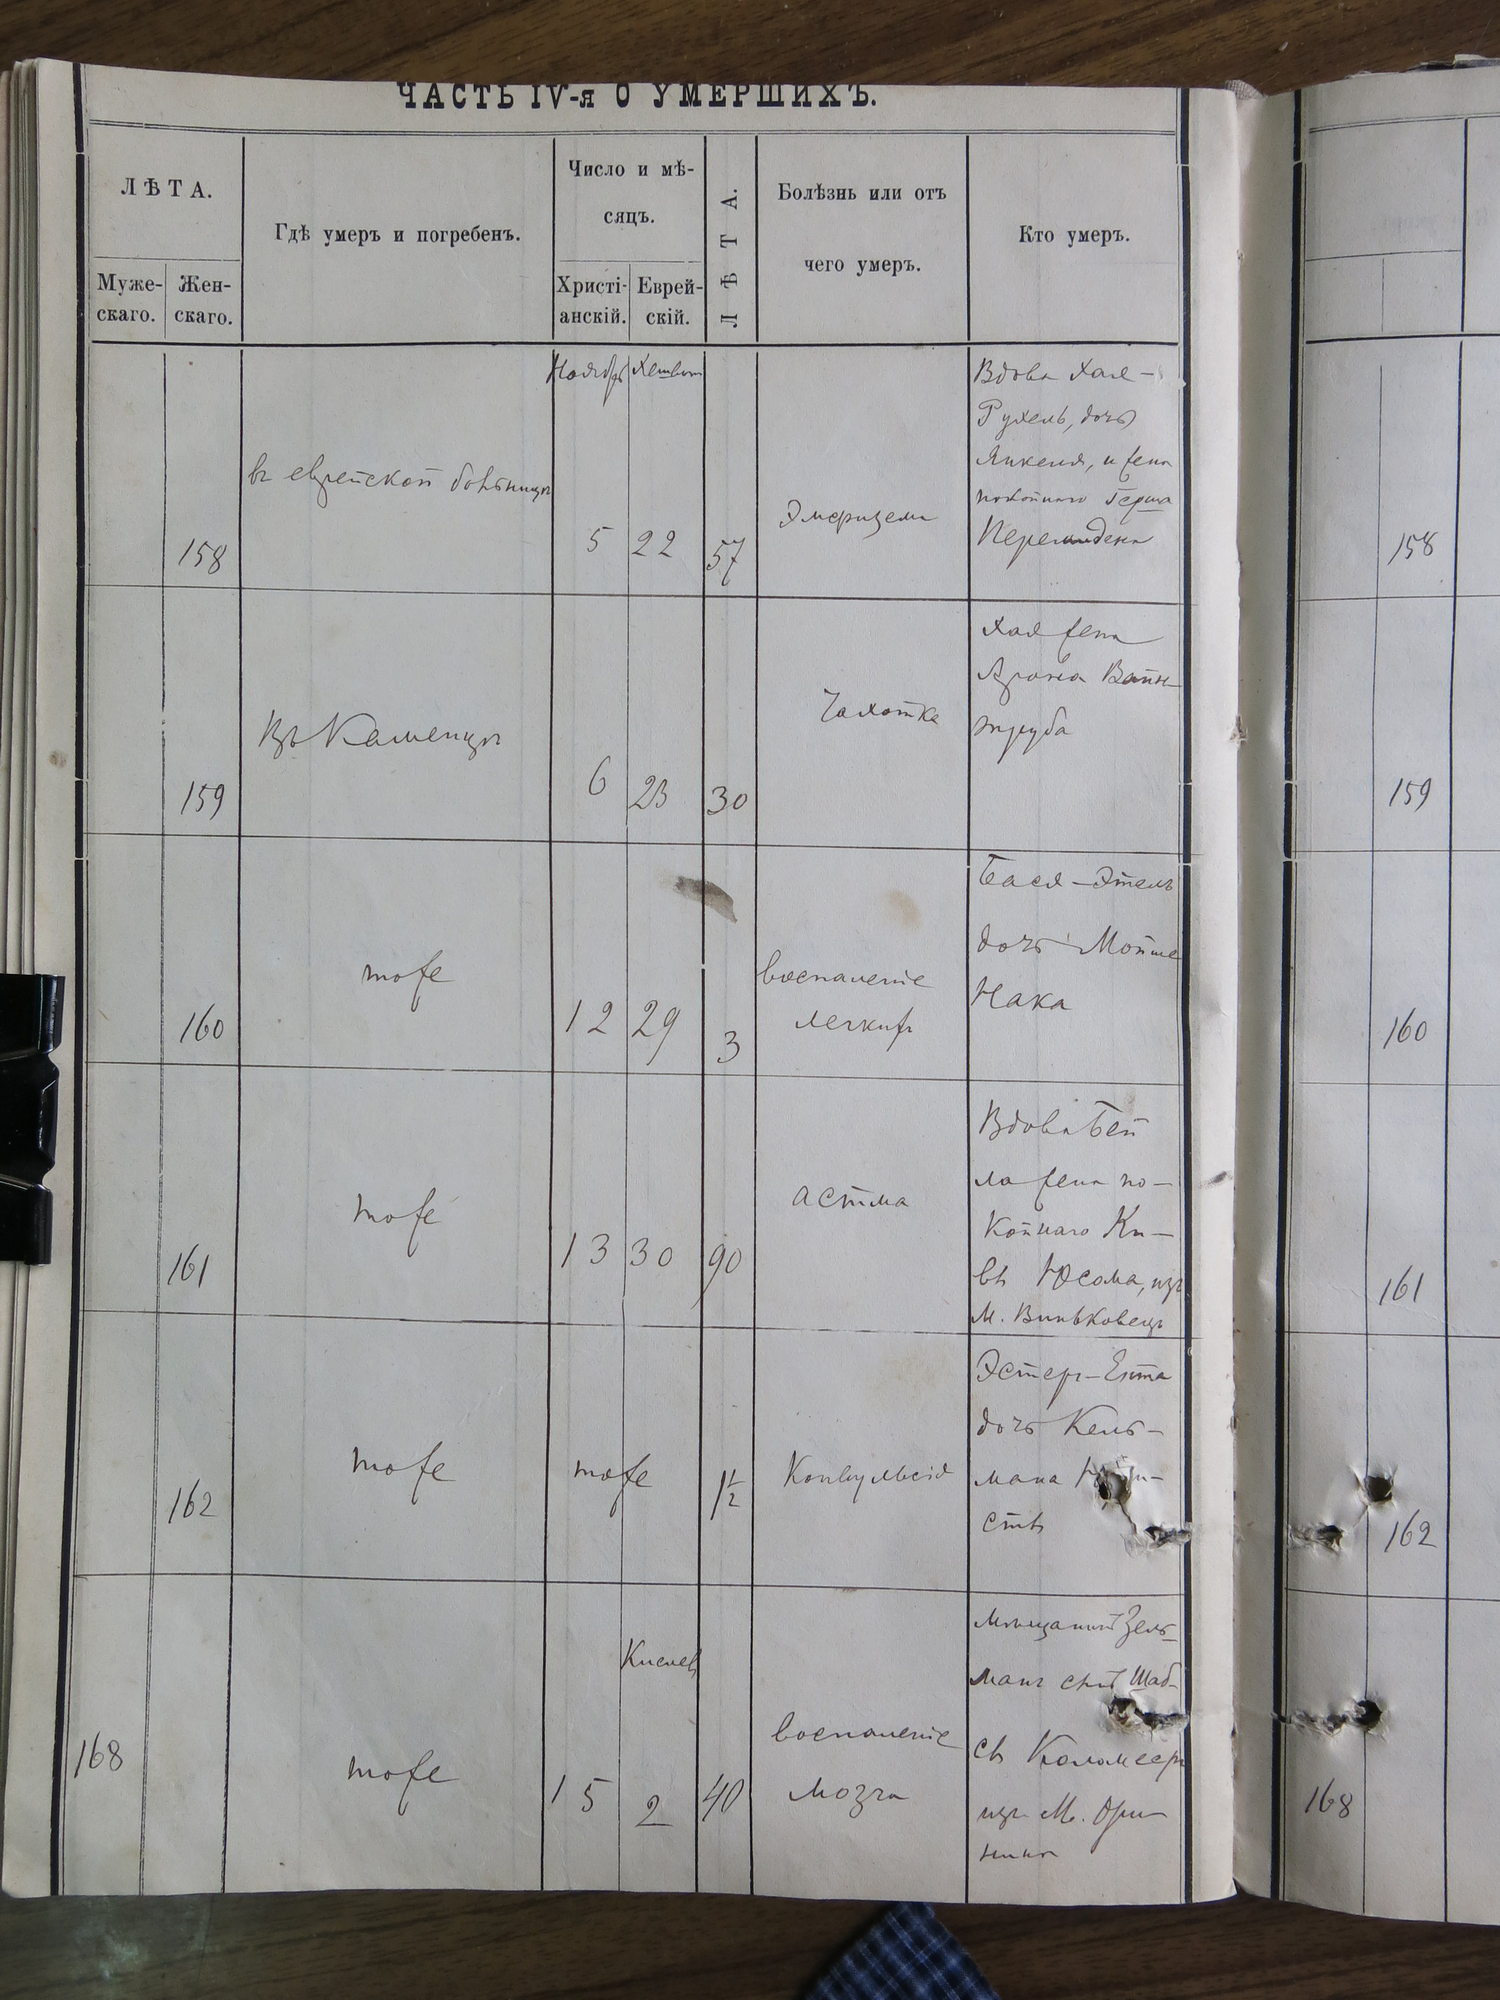 ЧАСТЬ IV-я О УМЕРШИХЪ.
ЛѢТА.
Муже-
скаго.
Жен-
скаго.
Гдѣ умеръ и погребенъ.
Число и мѣ-
сяцъ.
Христі-
анскій.
Еврей-
скій.
ЛѢТА.
Болѣзнь или отъ
чего умеръ.
Кто умеръ.
158
въ еврейской больницѣ
Ноябрь
5
22
57
Эмфизема
Вдова Хая-
Рухель, дочь
Янкеля, и жена
покойнаго Герша
159
Въ Каменцѣ
6
23
30
Чахотка
Хая жена
Арона Вайн-
труба
160
тоже
12
29
3
воспаленіе
легкихъ
Бася-Этель
дочь Мойше
Нака
161
тоже
13
30
90
астма
Вдова Бей
ла жена по-
койнаго Ки-
вы
изъ
м. Виньковецъ
162
тоже
тоже
1 1/2
Конвульсія
Эстеръ-Ента
дочь Кель-
мана
168
тоже
Кислев
15
2
40
воспаленіе
мозга
мѣщанинъ Зель-
манъ сынъ Шаб-
сы
изъ м. Ори-
нина
158
159
160
161
162
168